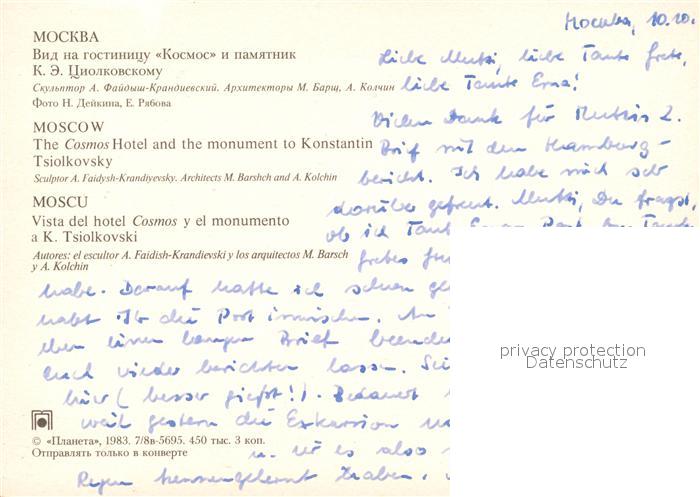 МОСКВА
Вид на гостиницу «Космос» и памятник
К. Э. Циолковскому
Скульптор А. Файдыш-Крандиевский. Архитекторы М. Барщ, А. Колчин
Фото Н. Дейкина, Е. Рябова
MOSCOW
The Cosmos Hotel and the monument to Konstantin
Tsiolkovsky
Sculptor A. Faidysh-Krandiyevsky. Architects M. Barshch and A. Kolchin
MOSCU
Vista del hotel Cosmos y el monumento
a K. Tsiolkovski
Autores: el escultor A. Faidish-Krandievski y los arquitectos M. Barsch
y A. Kolchin
Moskau, 10.10.
Liebe Mutti, liebe Tante Grete,
liebe Tante Erna!
Vielen Dank für Muttis 2.
Brief mit dem Hamburg-
bericht. Ich habe mich sehr
darüber gefreut. Mutti, Du fragst,
ob ich Tante Ernas Post bzw. Tante
Gretes
habe. Darauf hatte ich schon
habt Ihr die Post inzwischen.
eben einen langen Brief
Euch wieder berichten lassen.
hier (besser gießt!).
weil gestern die Exkursion
u. wir es also
Regen kennengelernt haben.
© «Планета», 1983. 7/8в-5695. 450 тыс. 3 коп.
Отправлять только в конверте
privacy protection
Datenschutz